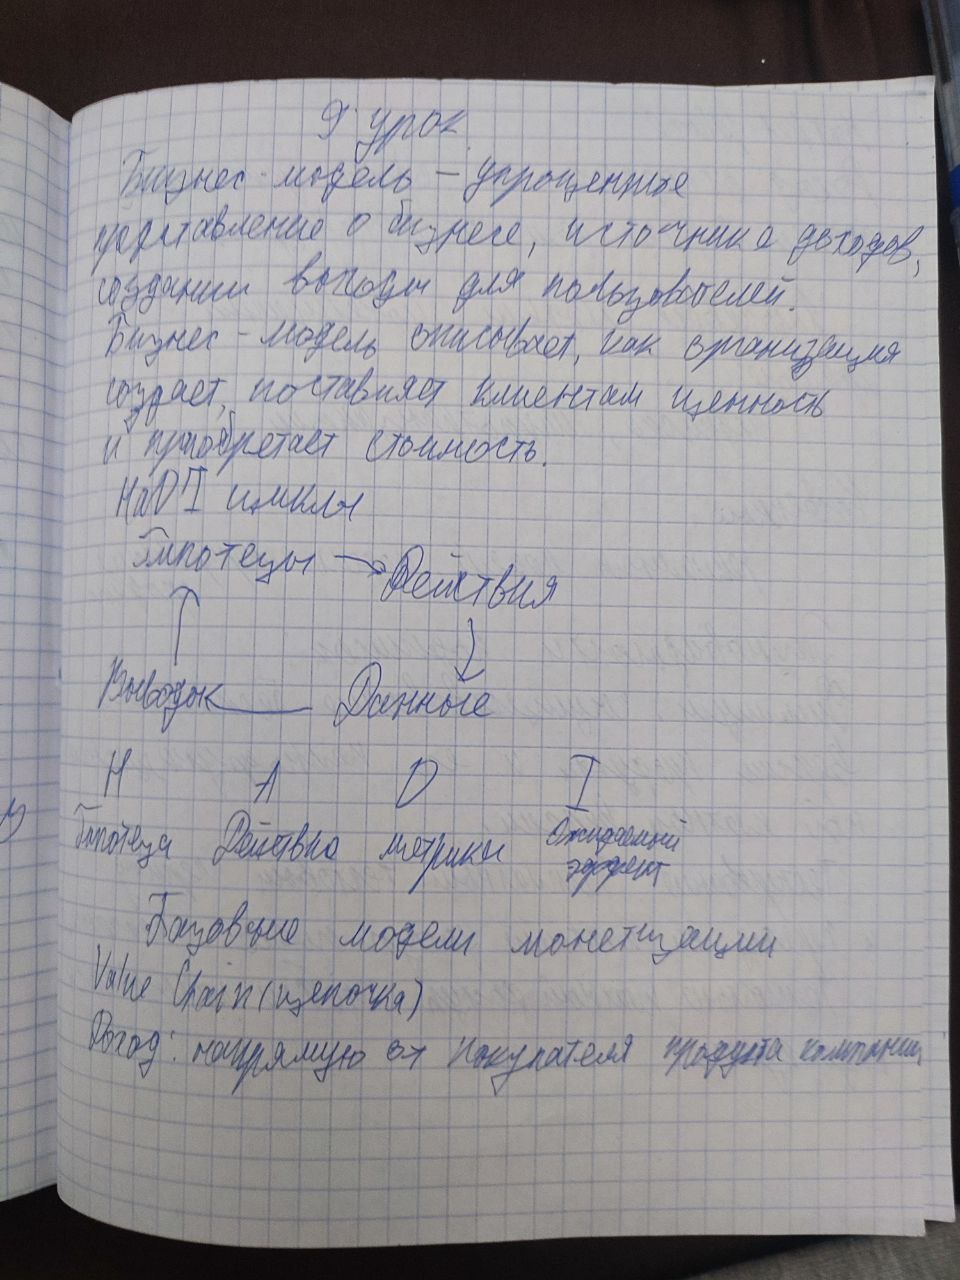 9 урок
Бизнес-модель – упрощенное
представление о бизнесе, источнике доходов,
создании выгоды для пользователей.
Бизнес-модель описывает, как организация
создает, поставляет клиентам ценность
и приобретает стоимость.
HADI циклы
Гипотезы → Действия
Выводы Данные
H A D I
Гипотеза Действие метрики Ожидаемый
эффект
Базовые модели монетизации
Value Chain (цепочка)
Доход: напрямую от покупателя продукта компании